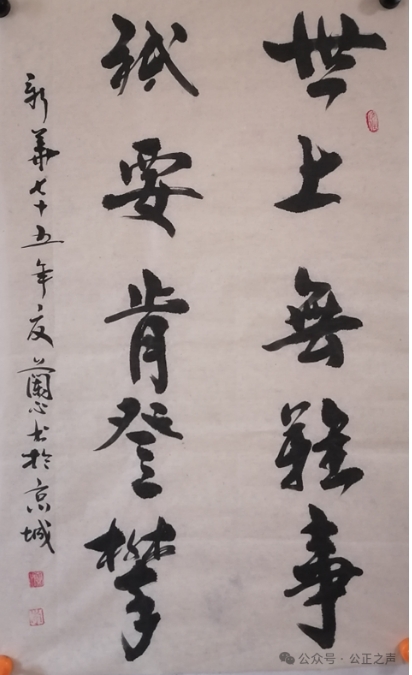 世上無難事
祇要肯登攀
新華七十五年度蘭心书於京城
公众号·公正之声